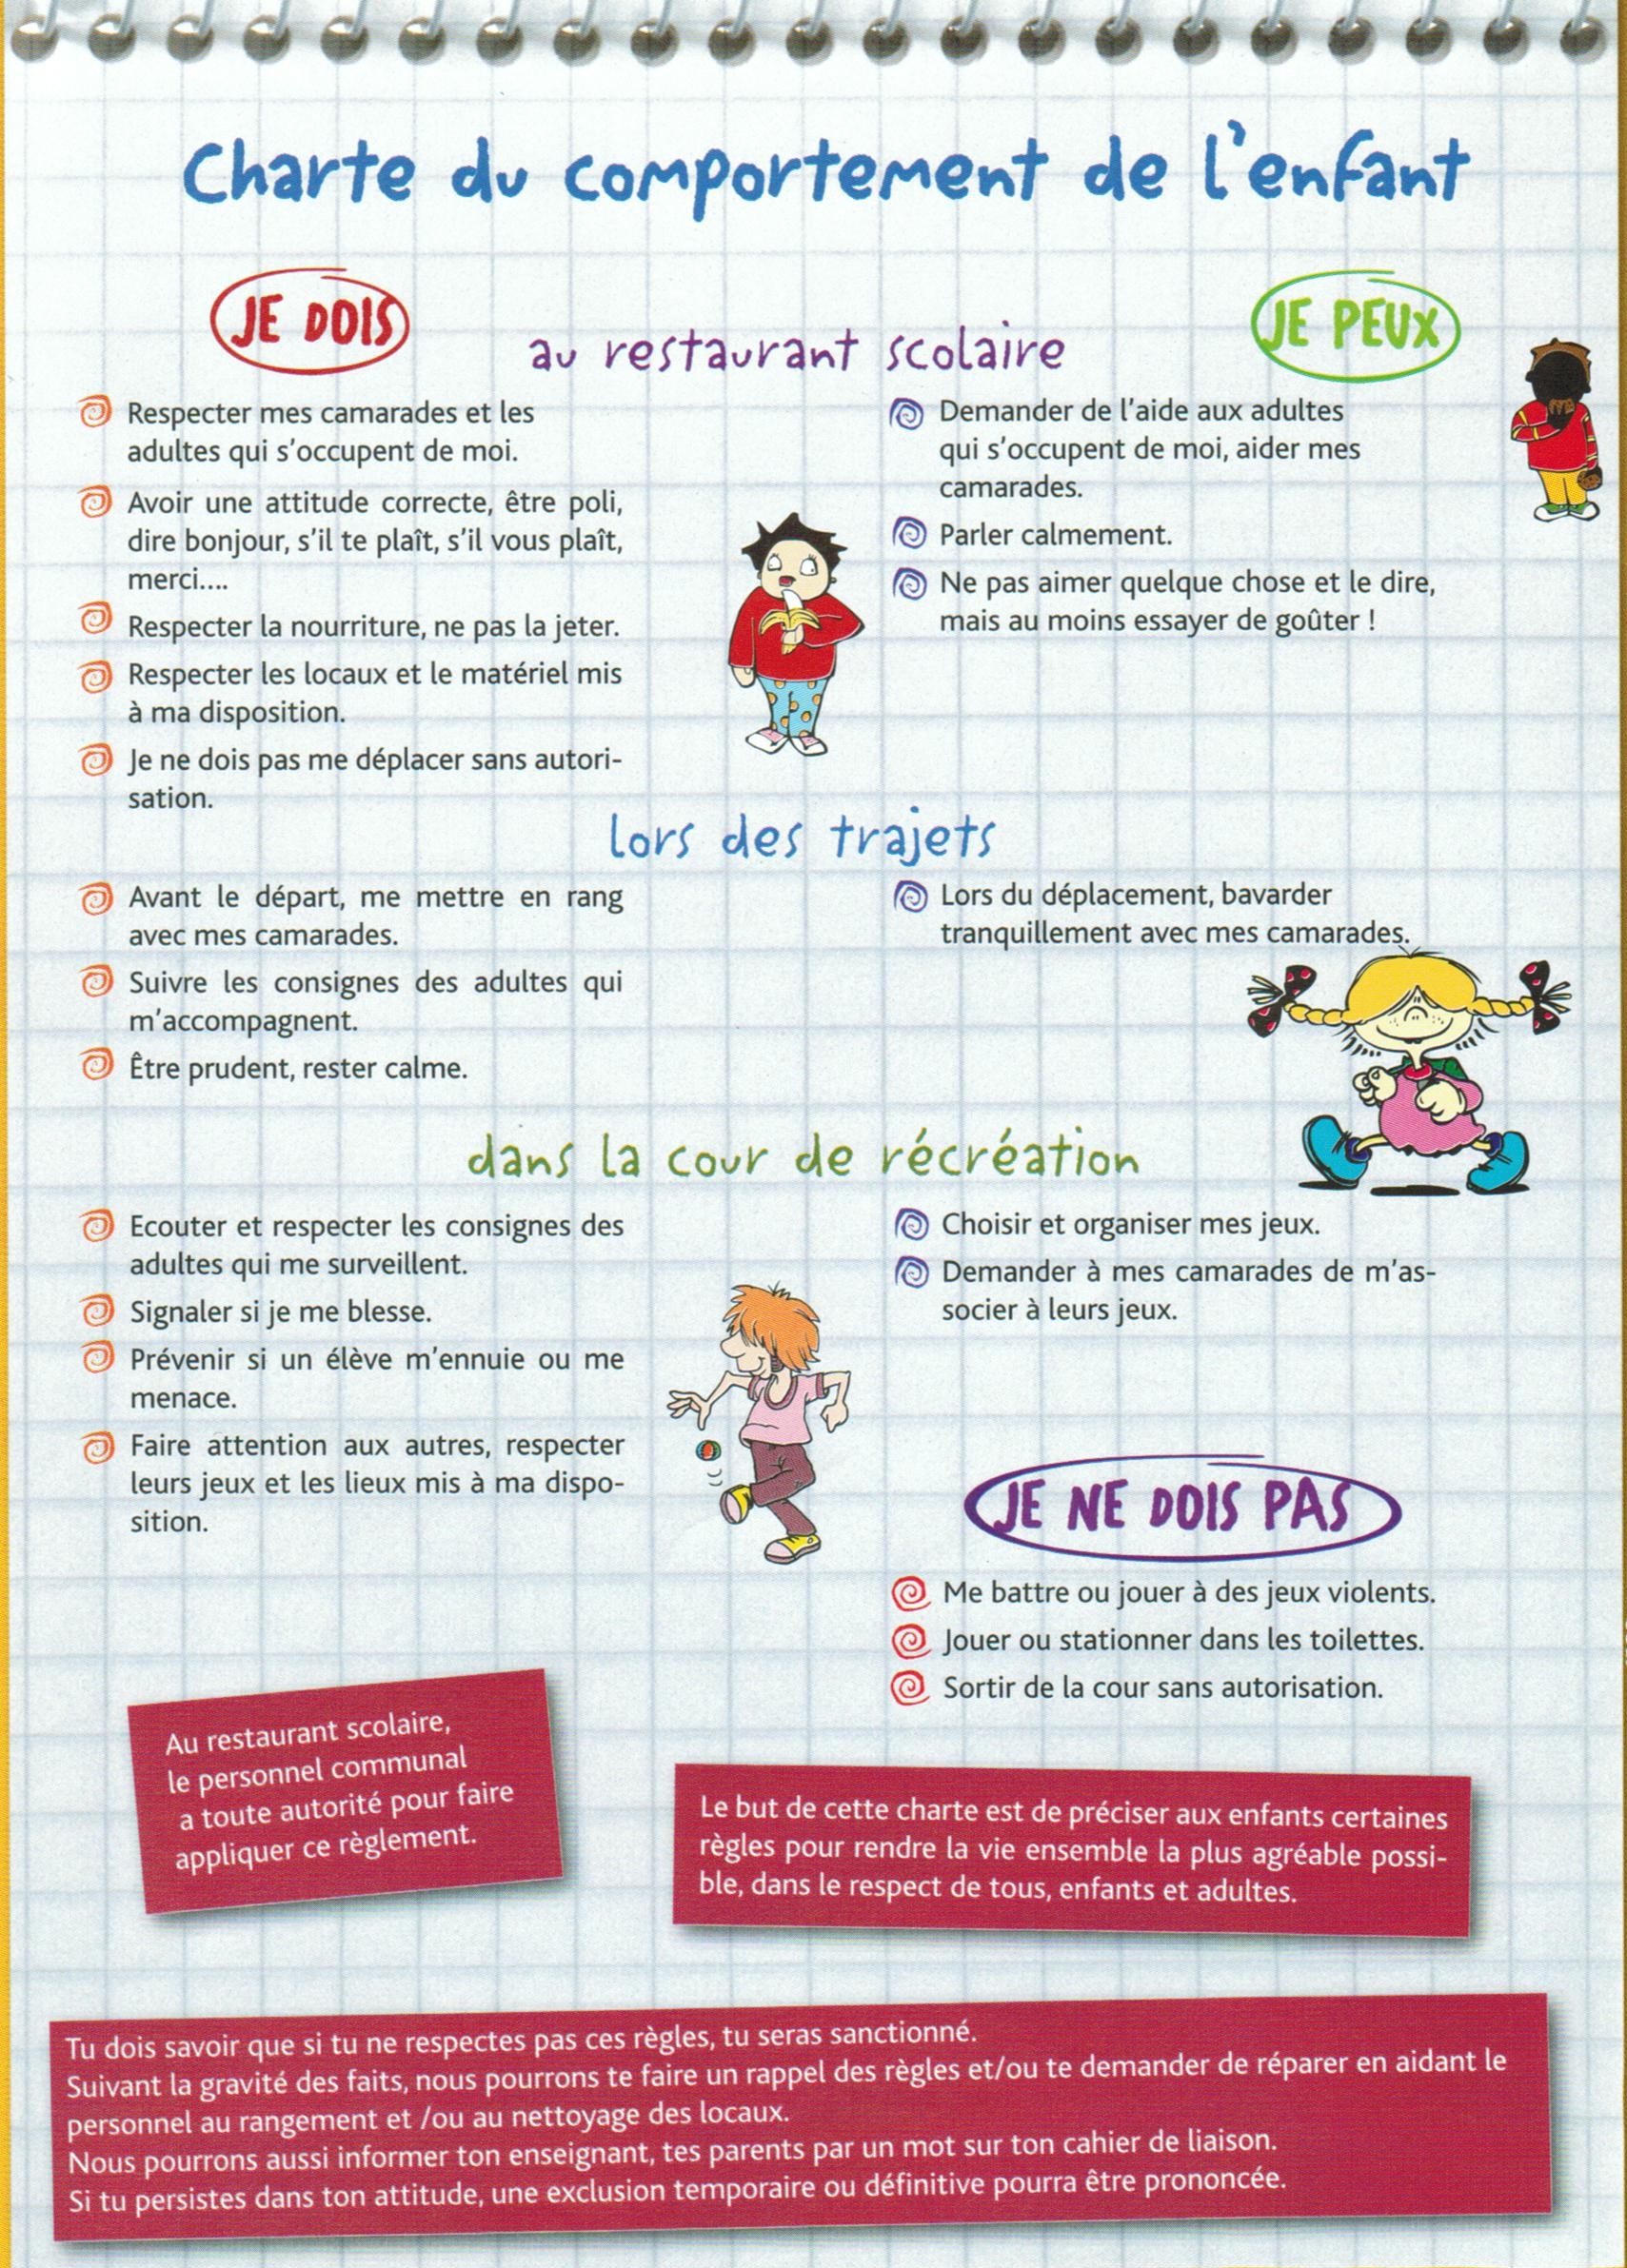 Charte du comportement de l'enfant
JE DOIS
JE PEUX
au restaurant scolaire
Respecter mes camarades et les
adultes qui s'occupent de moi.
Avoir une attitude correcte, être poli,
dire bonjour, s'il te plaît, s'il vous plaît,
merci....
Respecter la nourriture, ne pas la jeter.
Respecter les locaux et le matériel mis
à ma disposition.
Je ne dois pas me déplacer sans autori-
sation.
Demander de l'aide aux adultes
qui s'occupent de moi, aider mes
camarades.
Parler calmement.
Ne pas aimer quelque chose et le dire,
mais au moins essayer de goûter !
lors des trajets
Avant le départ, me mettre en rang
avec mes camarades.
Suivre les consignes des adultes qui
m'accompagnent.
Être prudent, rester calme.
Lors du déplacement, bavarder
tranquillement avec mes camarades.
dans la cour de récréation
Ecouter et respecter les consignes des
adultes qui me surveillent.
Signaler si je me blesse.
Prévenir si un élève m'ennuie ou me
menace.
Faire attention aux autres, respecter
leurs jeux et les lieux mis à ma dispo-
sition.
Choisir et organiser mes jeux.
Demander à mes camarades de m'as-
socier à leurs jeux.
JE NE DOIS PAS
Me battre ou jouer à des jeux violents.
Jouer ou stationner dans les toilettes.
Sortir de la cour sans autorisation.
Au restaurant scolaire,
le personnel communal
a toute autorité pour faire
appliquer ce règlement.
Le but de cette charte est de préciser aux enfants certaines
règles pour rendre la vie ensemble la plus agréable possi-
ble, dans le respect de tous, enfants et adultes.
Tu dois savoir que si tu ne respectes pas ces règles, tu seras sanctionné.
Suivant la gravité des faits, nous pourrons te faire un rappel des règles et/ou te demander de réparer en aidant le
personnel au rangement et /ou au nettoyage des locaux.
Nous pourrons aussi informer ton enseignant, tes parents par un mot sur ton cahier de liaison.
Si tu persistes dans ton attitude, une exclusion temporaire ou définitive pourra être prononcée.